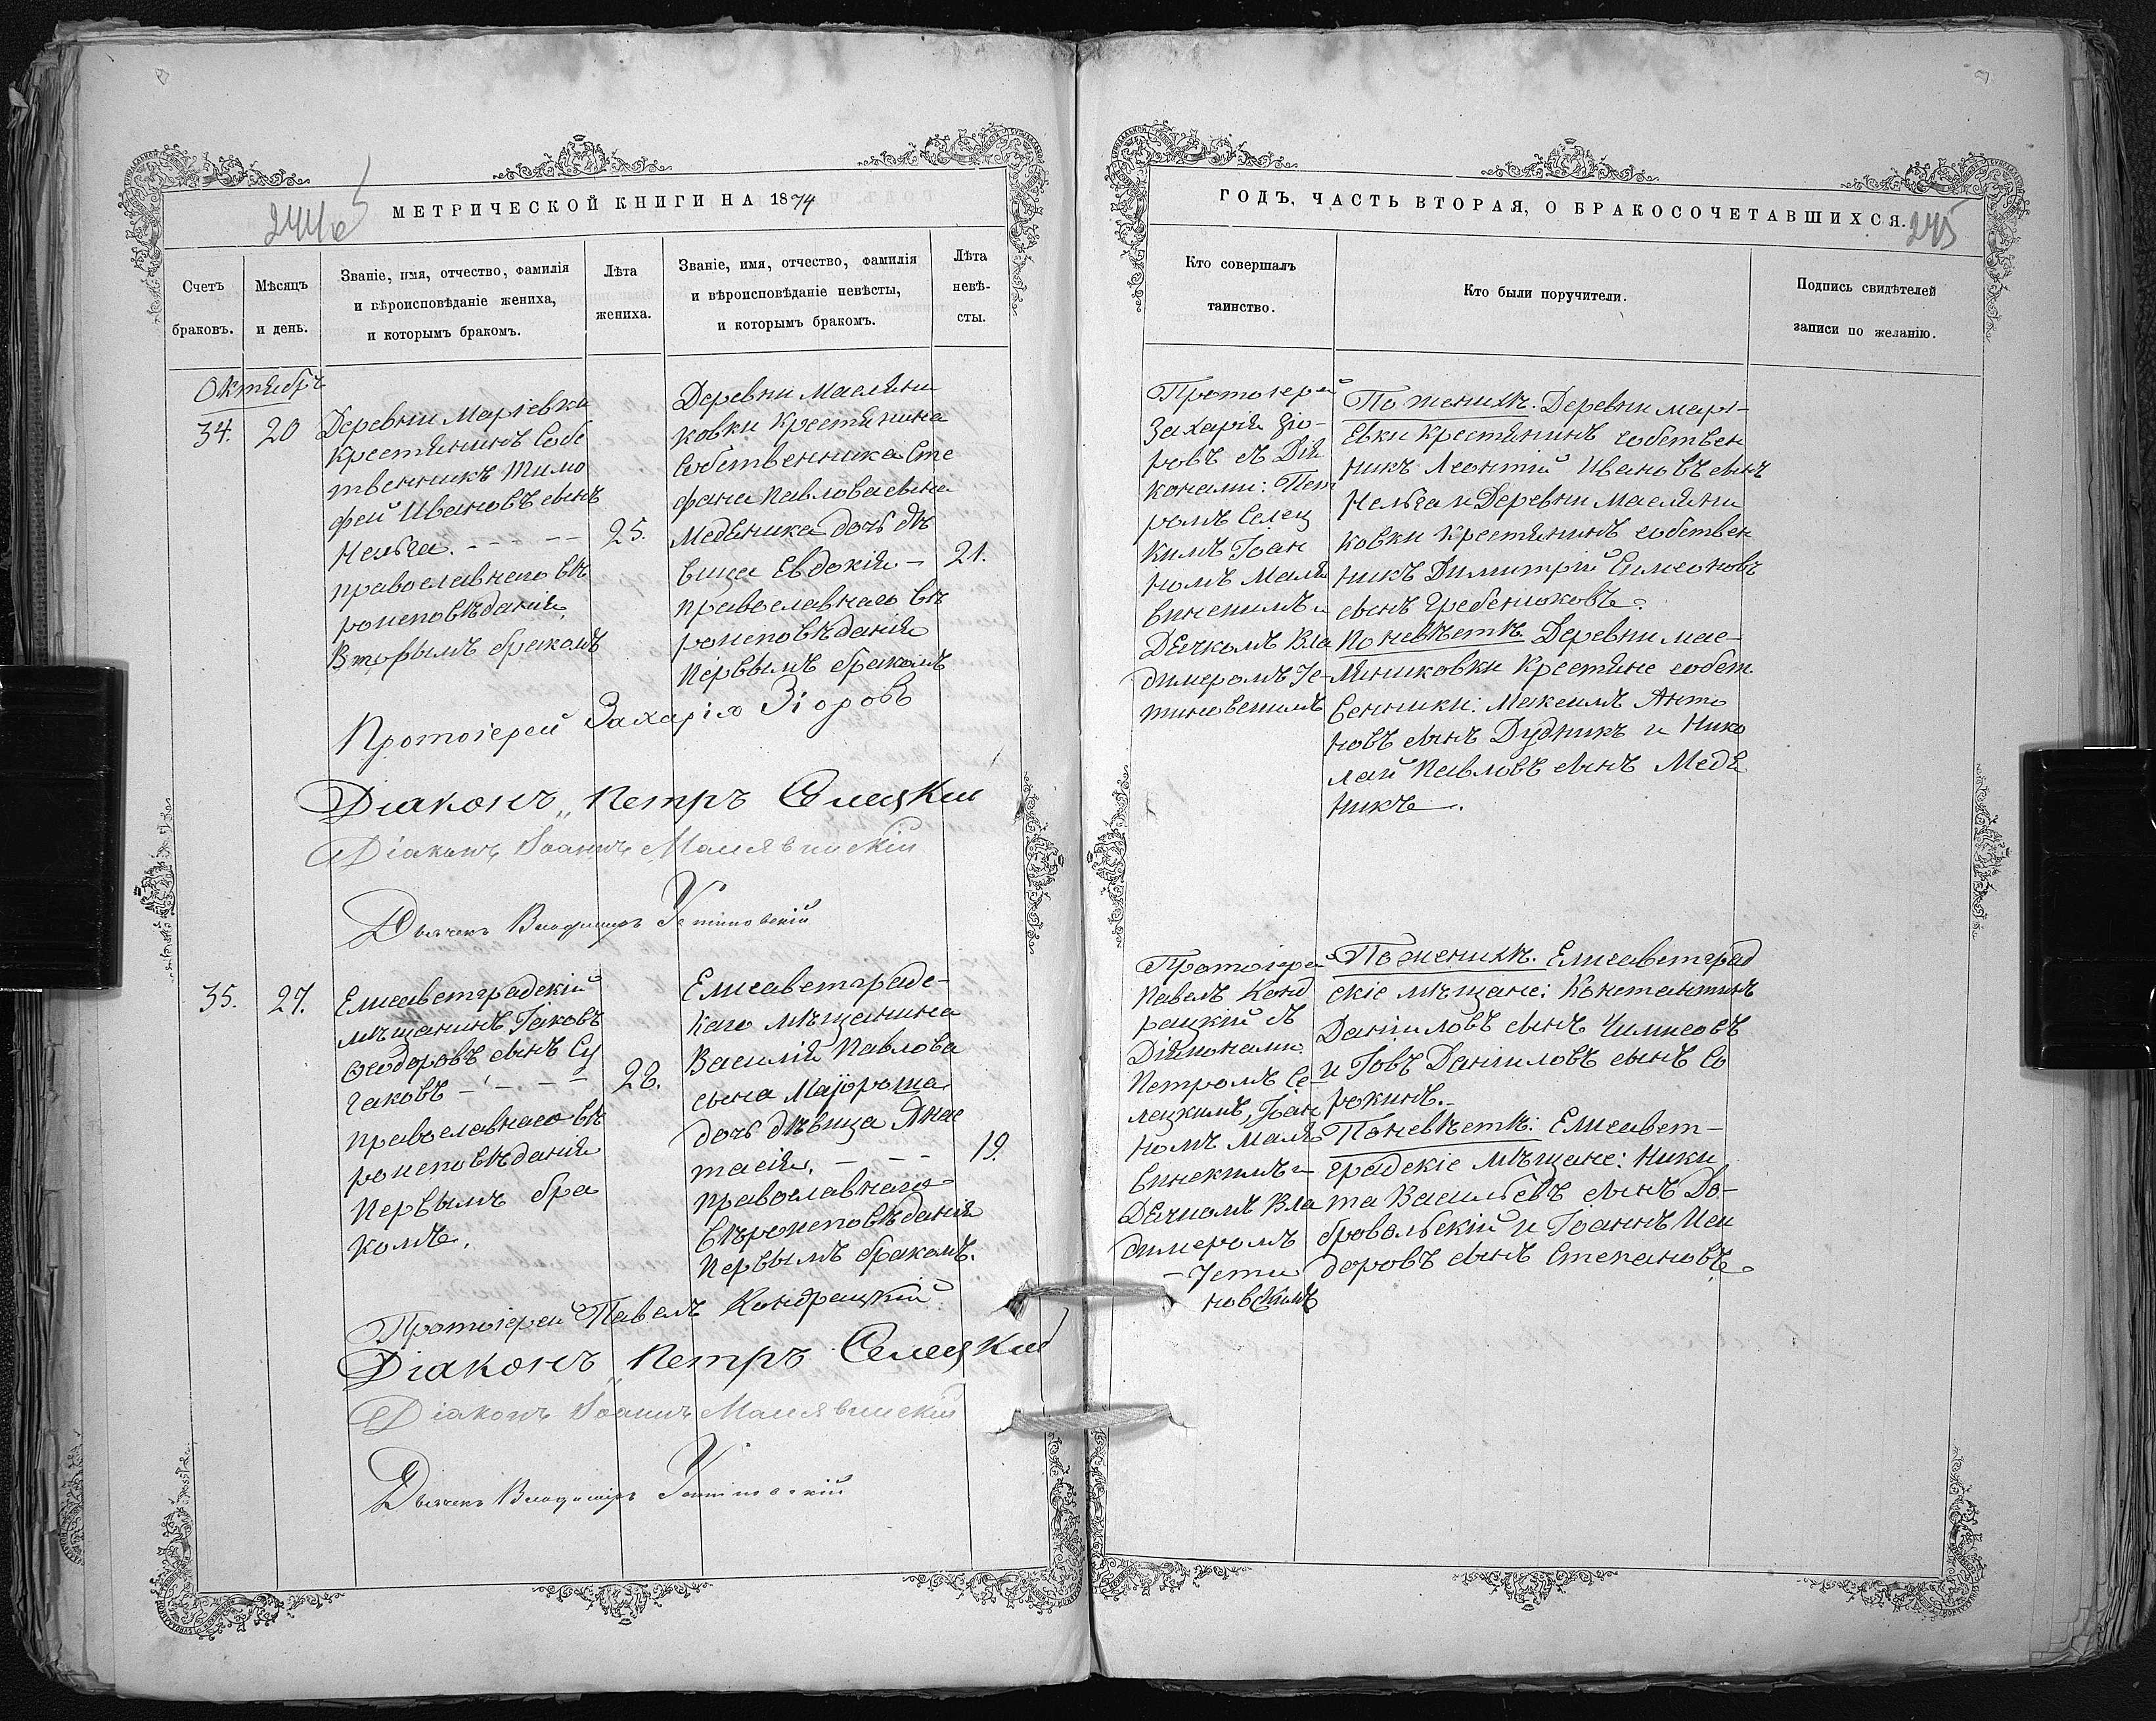 244об
МЕТРИЧЕСКОЙ КНИГИ НА 1874
Счетъ
браковъ.
Мѣсяцъ
и день.
Званіе, имя, отчество, фамилія
и вѣроисповѣданіе жениха,
и которымъ бракомъ.
Лѣта
жениха.
Званіе, имя, отчество, фамилія
и вѣроисповѣданіе невѣсты,
и которымъ бракомъ.
Лѣта
невѣ-
сты.
Октябрь
34.
20
Деревни Маріевки
Крестьянинъ Собс
твенникъ Тимо
фей Ивановъ сынъ
Нельга. - - - -
православнаго вѣ
роисповѣданія,
Вторымъ бракомъ
25.
Деревни Маслени
ковки Крестьянина
Собственника Сте
фана Павлова сына
Медяника дочь дѣ
вица Евдокія -
православнаго вѣ
роисповѣданія
Первымъ бракомъ
21.
Протоіерей Захарія Зіоровъ
Діаконъ Петръ Селецкій
Діаконъ Іоаннъ Малявинскій
Дьячекъ Владиміръ Устиновскій
35.
27.
Елисаветградскій
мѣщанинъ Іаковъ
Ѳеодоровъ сынъ Су
гаковъ - - - -
православнаго вѣ
роисповѣданія
Первымъ бра
комъ.
28.
Елисаветградс-
каго мѣщанина
Василія Павлова
сына
дочь дѣвица Анас
тасія. - - -
православнаго
вѣроисповѣданія
Первымъ бракомъ.
19.
Протоіерей Павелъ Кондрацкій
Діаконъ Петръ Селецкій
Діаконъ Іоаннъ Малявинскій
Дьячекъ Владиміръ Устиновскій
ГОДЪ, ЧАСТЬ ВТОРАЯ, О БРАКОСОЧЕТАВШИХСЯ.
245
Кто совершалъ
таинство.
Кто были поручители.
Подпись свидѣтелей
записи по желанію.
Протоіерей
Захарія Зіо-
ровъ съ Дія
конами: Пет
ромъ Селец
кимъ Іоан
номъ Маля
винскимъ и
Дьячкомъ Вла
димеромъ Ус-
тиновскимъ
По женихѣ. Деревни Марі-
евки Крестьянинъ собствен
никъ Леонтій Ивановъ сынъ
Нельга и Деревни Маслени
ковки Крестьянинъ собствен
никъ Димитрій Симеоновъ
сынъ Гребенюковъ.
По невѣстѣ. Деревни Мас-
лениковки Крестьяне собст
венники: Максимъ Анто
новъ сынъ Дудникъ и Нико
лай Павловъ сынъ Медя
никъ.
Протоіерей
Павелъ Конд
рацкій съ
Діяконами:
Петромъ Се-
лецкимъ, Іоан
номъ Маля
винскимъ и
Дячкомъ Вла
димеромъ
- Усти
новскимъ
По женихѣ. Елисаветград
скіе мѣщане: Константинъ
Даніиловъ сынъ
и Іовъ Даніиловъ сынъ Со
рокинъ.-
По невѣстѣ: Елисавет-
градскіе мѣщане: Ники
та Васильевъ сынъ До-
бровольскій и Іоаннъ Иси
доровъ сынъ Степановъ.